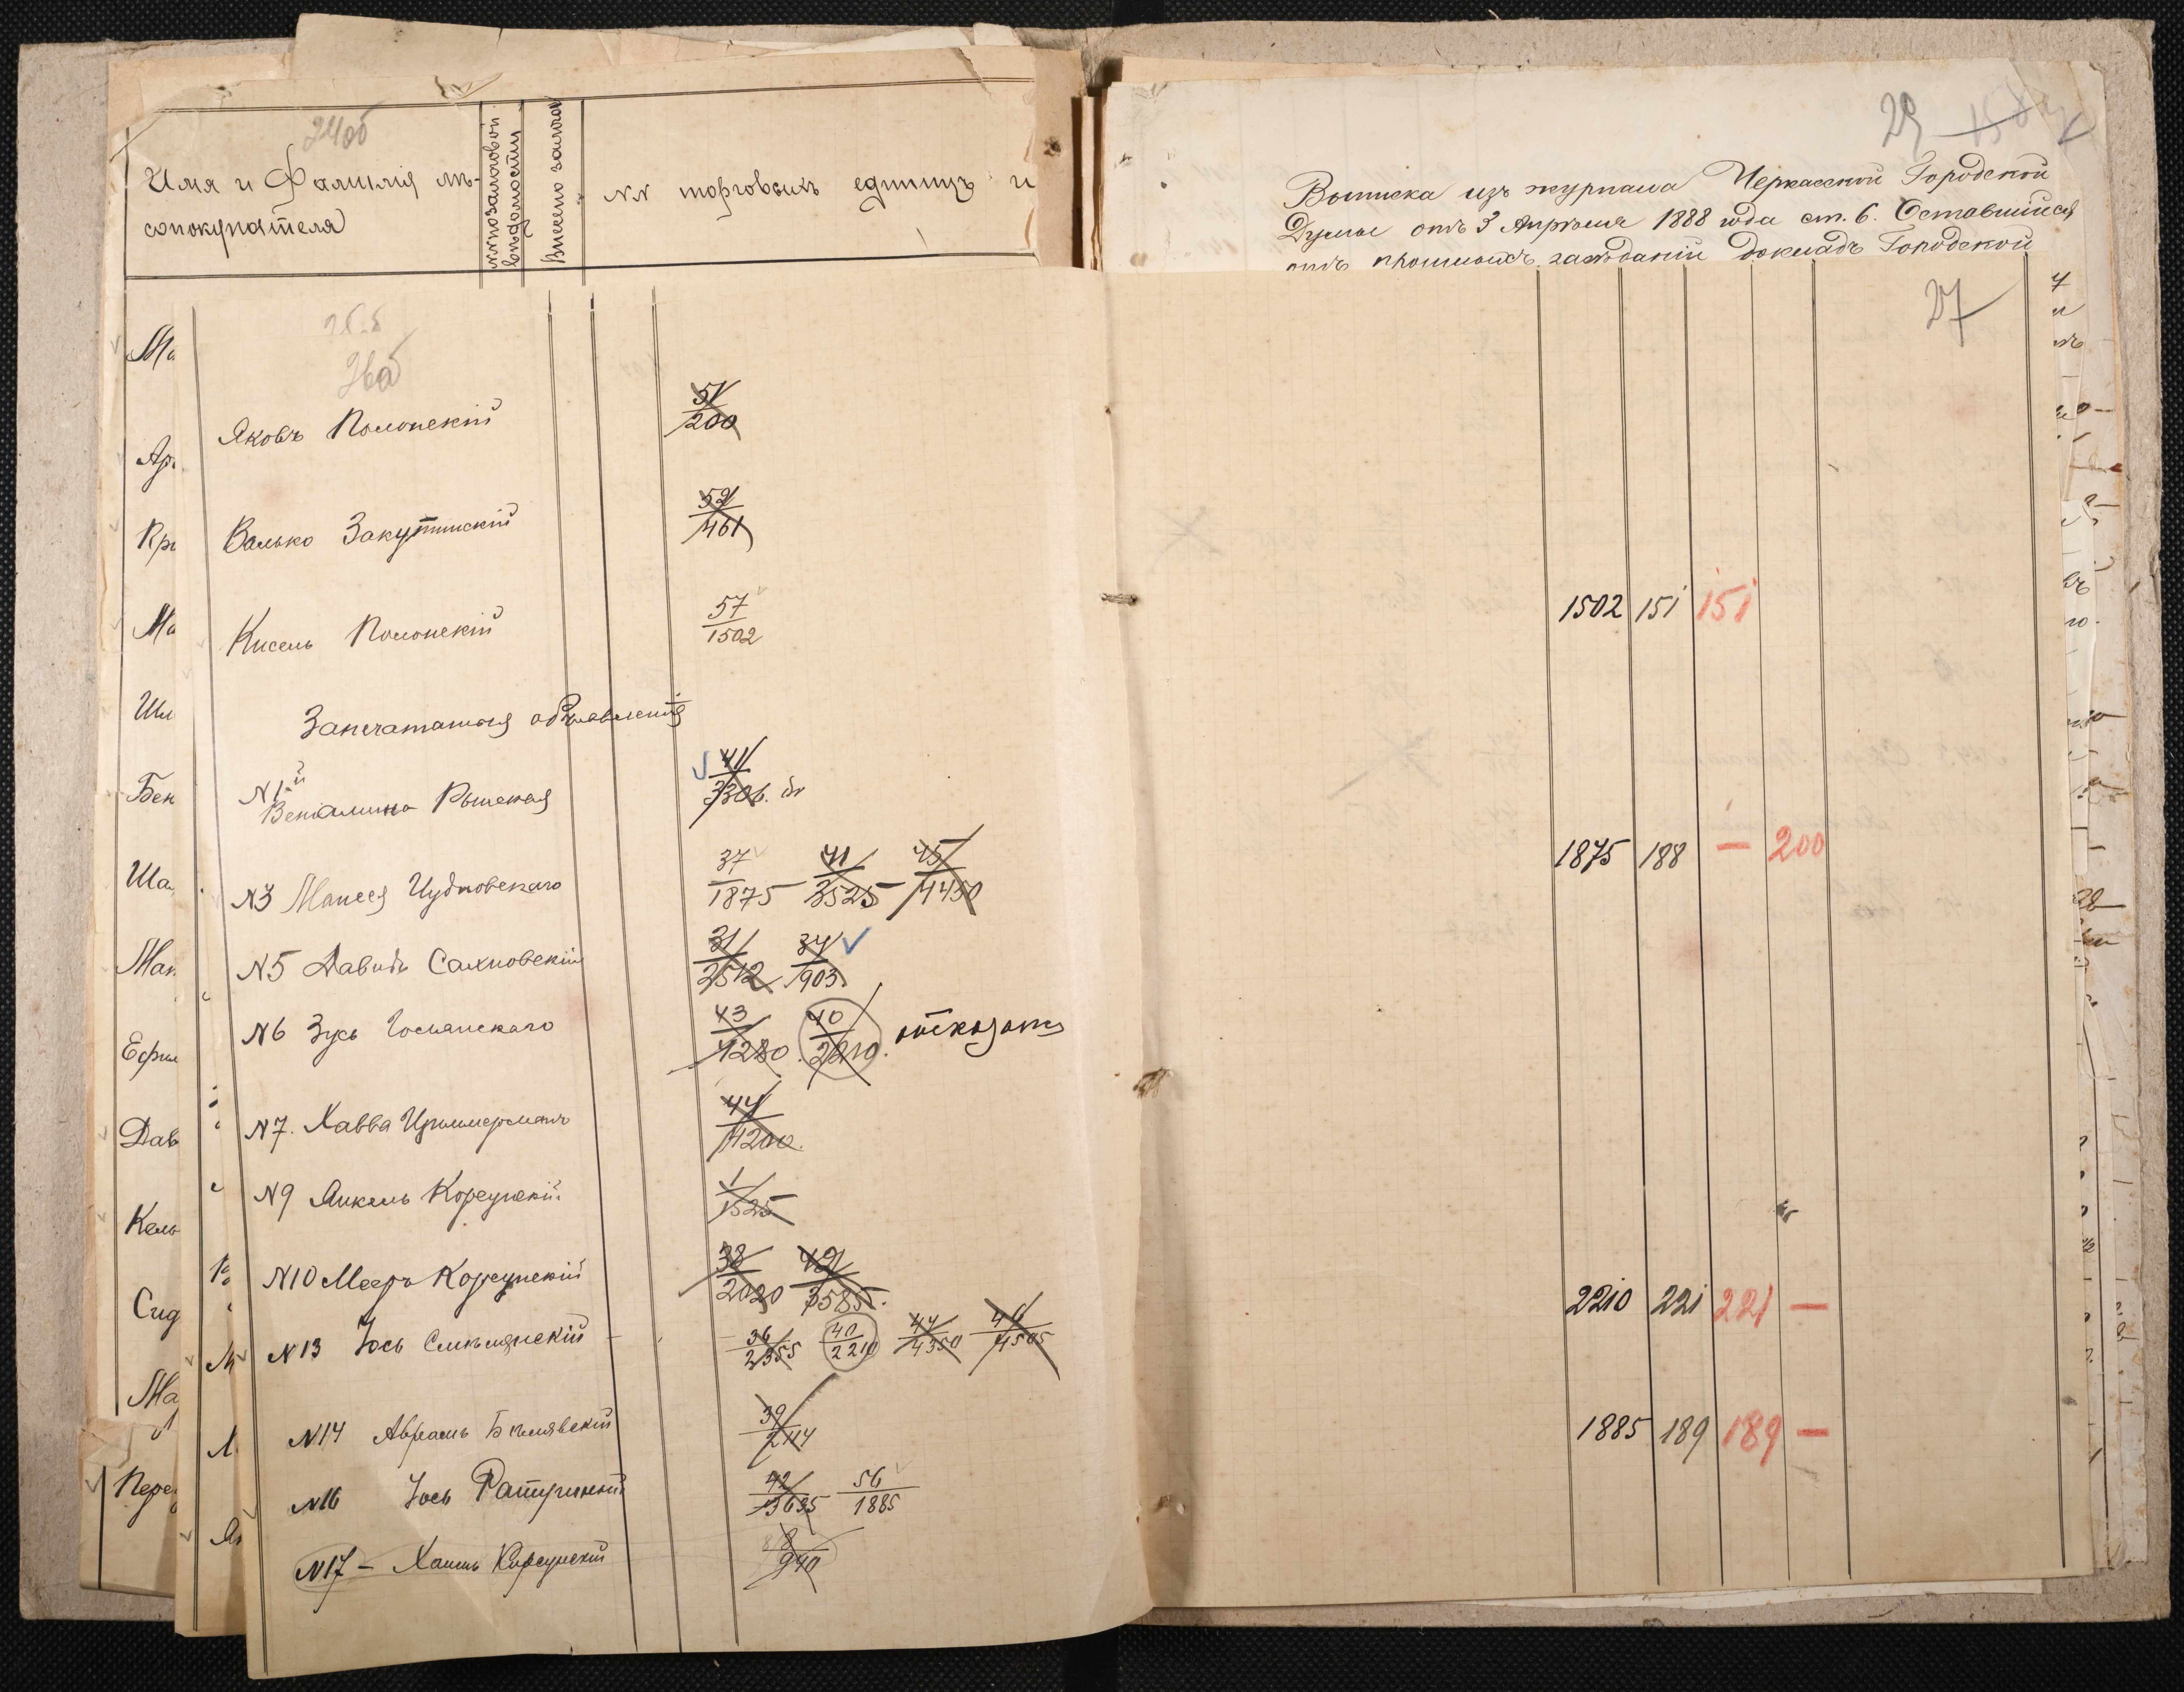 24об
Имя и Фамилія лѣ-
сопокупателя
№ по залоговой
вѣдомости
Внесено залога
NN торговыхъ единицъ и
Ма
Ар
Кри
Ма
Шл
Бен
Ша
Ман
Ефим
Дав
Кель
Сид
Ма
Пере
26об
Яковъ Полонскій 51/200
Валько Закутинскій 52/461
Кисель Полонскій 57/1502
Запечатанныя объявленія
N1й
Веніамина Рынскaя 41/3306
N3 Манеся Чудновскаго 37/1875 41/3525 45/4450
N5 Давидъ Сахновскій 31/2512 34/903
N6 Зусь Гослянскаго 43/4280 40/2210 отказать
N7. Хавва Циммерманъ 44/4200
N9 Янкель Корсунскій 1/1525
N10 Мееръ Корсунскій 38/2020 42/3585
N13 Іось Смѣлянскій 36/2355 40/2210 44/4350 44/4505
N14 Авраамъ Бѣлявскій 39/2114
N16 Іось Ратушный 42/3635 56/1885
N17 – Хаимъ Корсунскій 8/940
29
Выписка изъ журнала Черкасской Городской
Думы отъ 3 Апрѣля 1888 года ст. 6. Оставшійся
отъ прошлыхъ засѣданій докладъ Городской
27
1502 151 151
1875 188 — 200
2210 221 221 —
1885 189 189 —